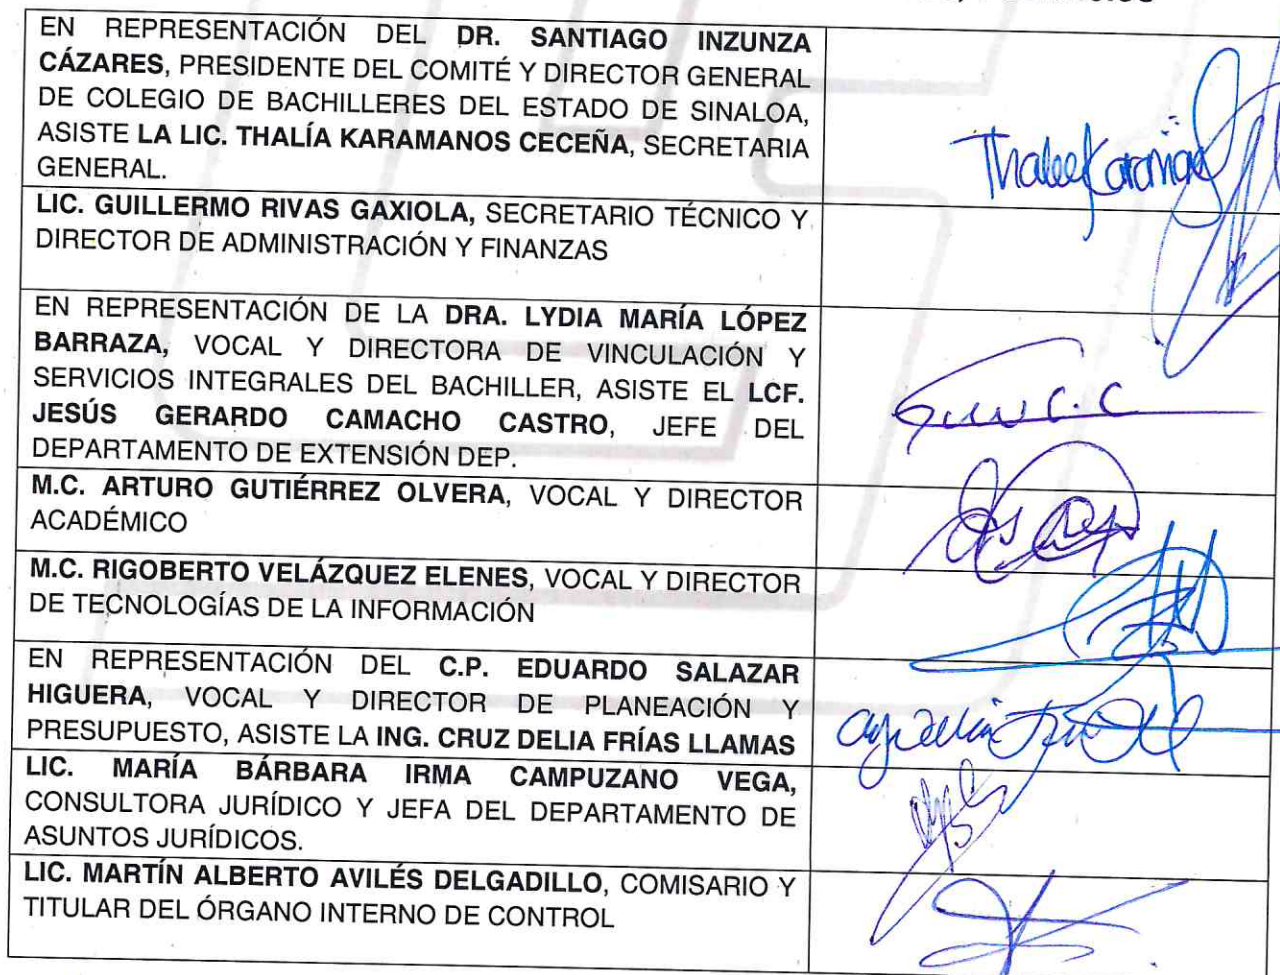 EN REPRESENTACIÓN DEL DR. SANTIAGO INZUNZA
CÁZARES, PRESIDENTE DEL COMITÉ Y DIRECTOR GENERAL
DE COLEGIO DE BACHILLERES DEL ESTADO DE SINALOA,
ASISTE LA LIC. THALÍA KARAMANOS CECEÑA, SECRETARIA
GENERAL.
LIC. GUILLERMO RIVAS GAXIOLA, SECRETARIO TÉCNICO Y
DIRECTOR DE ADMINISTRACIÓN Y FINANZAS
EN REPRESENTACIÓN DE LA DRA. LYDIA MARÍA LÓPEZ
BARRAZA, VOCAL Y DIRECTORA DE VINCULACIÓN Y
SERVICIOS INTEGRALES DEL BACHILLER, ASISTE EL LCF.
JESÚS GERARDO CAMACHO CASTRO, JEFE DEL
DEPARTAMENTO DE EXTENSIÓN DEP.
M.C. ARTURO GUTIÉRREZ OLVERA, VOCAL Y DIRECTOR
ACADÉMICO
M.C. RIGOBERTO VELÁZQUEZ ELENES, VOCAL Y DIRECTOR
DE TECNOLOGÍAS DE LA INFORMACIÓN
EN REPRESENTACIÓN DEL C.P. EDUARDO SALAZAR
HIGUERA, VOCAL Y DIRECTOR DE PLANEACIÓN Y
PRESUPUESTO, ASISTE LA ING. CRUZ DELIA FRÍAS LLAMAS
LIC. MARÍA BÁRBARA IRMA CAMPUZANO VEGA,
CONSULTORA JURÍDICO Y JEFA DEL DEPARTAMENTO DE
ASUNTOS JURÍDICOS.
LIC. MARTÍN ALBERTO AVILÉS DELGADILLO, COMISARIO Y
TITULAR DEL ÓRGANO INTERNO DE CONTROL